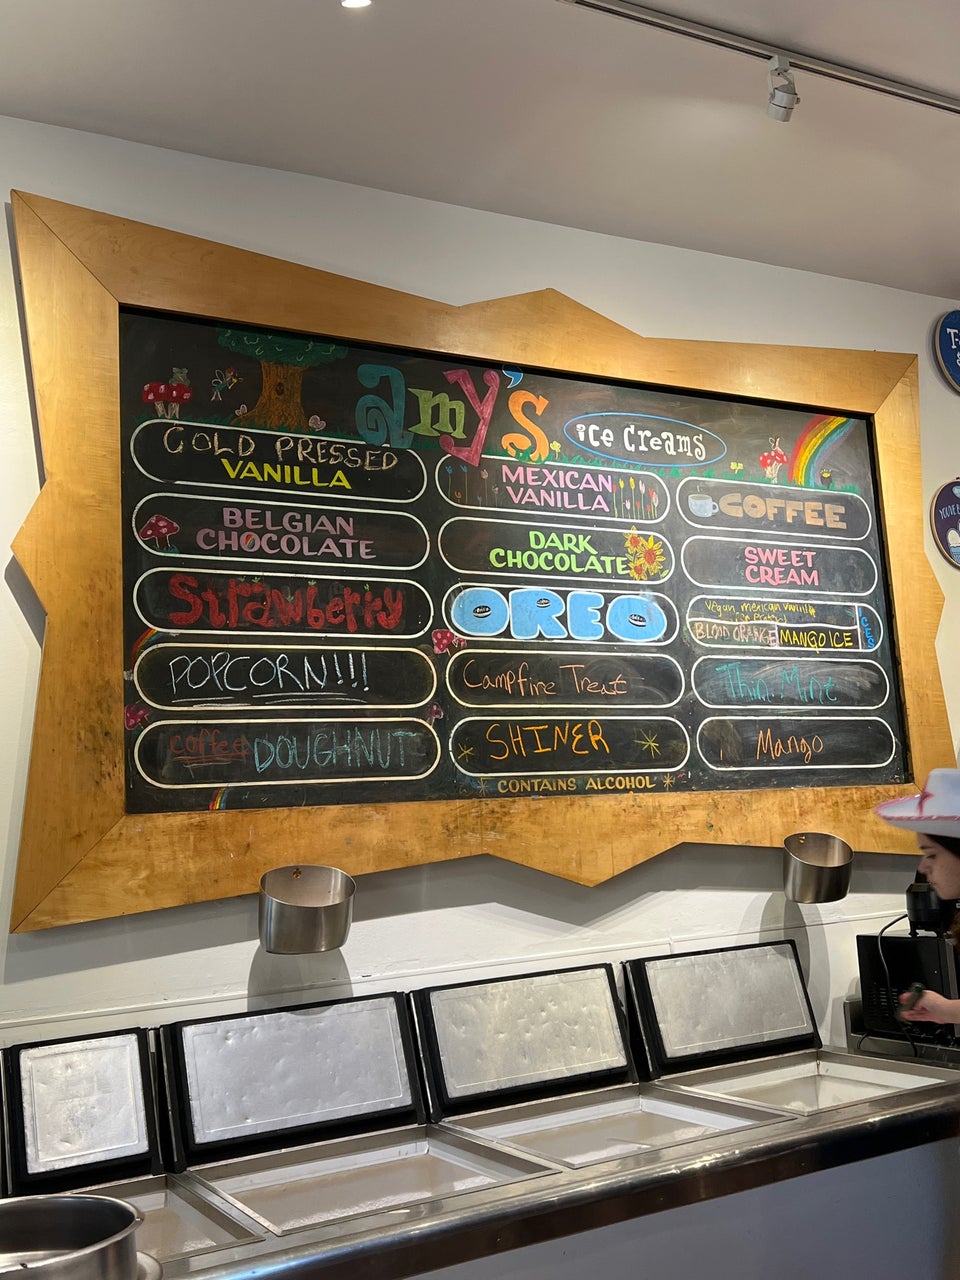 amy's
ice creams
COLD PRESSED
VANILLA
BELGIAN
CHOCOLATE
Strawberry
POPCORN!!!
coffee DOUGHNUT
MEXICAN
VANILLA
DARK
CHOCOLATE
OREO
Campfire Treat
SHINER
CONTAINS ALCOHOL
COFFEE
SWEET
CREAM
Vegan mexican vanilla
BLOOD ORANGE MANGO ICE
ICES
Thin Mint
Mango
YOU'VE